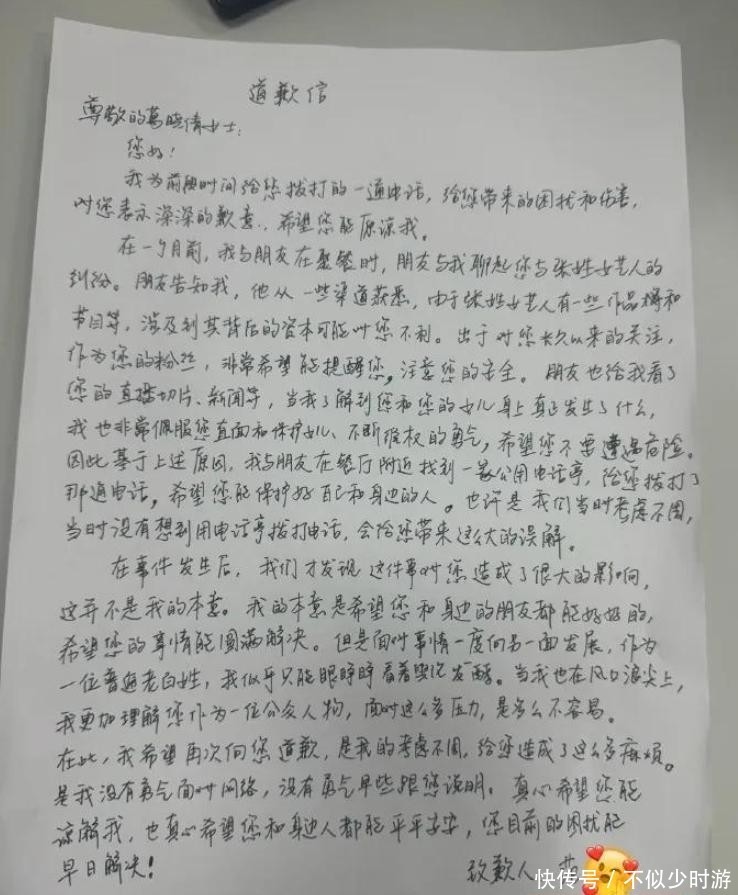 道歉信
尊敬的葛晓倩女士:
您好!
我为前段时间给您拨打的一通电话,给您带来的困扰和伤害,
对您表示深深的歉意,希望您能原谅我。
在一个月前,我与朋友在聚餐时,朋友与我聊起您与张姓女艺人的
纠纷。朋友告知我,他从一些渠道获悉,由于张姓女艺人有一些作品播和
节目等,涉及到其背后的资本可能对您不利。出于对您长久以来的关注,
作为您的粉丝,非常希望能提醒您,注意您的安全。朋友也给我看了
您的直播切片、新闻等,当我了解到您和您的女儿身上真正发生了什么,
我也非常佩服您直面和保护女儿、不断维权的勇气,希望您不要遭遇危险。
因此基于上述原因,我与朋友在餐厅附近找到一家公用电话亭,给您拨打了
那通电话,希望您能保护好自己和身边的人。也许是我们当时考虑不周,
当时没有想到用电话亭拨打电话,会给您带来这么大的误解。
在事件发生后,我们才发现这件事对您造成了很大的影响,
这并不是我的本意。我的本意是希望您和身边的朋友都能好好的,
希望您的事情能圆满解决。但是面对事情一度向另一面发展,作为
一位普通老百姓,我似乎只能眼睁睁看着舆论发酵。当我也在风口浪尖上,
我更加理解您作为一位公众人物,面对这么多压力,是多么不容易。
在此,我希望再次向您道歉,是我的考虑不周,给您造成了这么多麻烦。
是我没有勇气面对网络,没有勇气早些跟您说明。真心希望您能
谅解我,也真心希望您和身边人都能平平安安,您目前的困扰能
早日解决!
致歉人
快传号/不似少时游